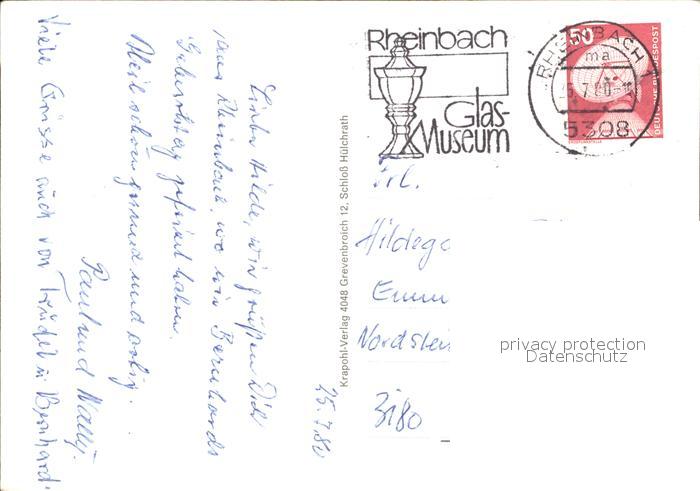 Rheinbach
Glas-
Museum
RHEINBACH 1
ma
5308
50
DEUTSCHE BUNDESPOST
25.7.80
Liebe Hilde, wir grüßen Dich
aus Rheinbach, wo wir Bernhards
Geburtstag gefeiert haben.
Bleib schön gesund und
Paul und Wally.
Viele Grüsse auch von Trudel u. Bernhard.
Krapohl-Verlag 4048 Grevenbroich 12, Schloß Hülchrath
Frl.
Hildega
Emm
Nordstei
3180
privacy protection
Datenschutz